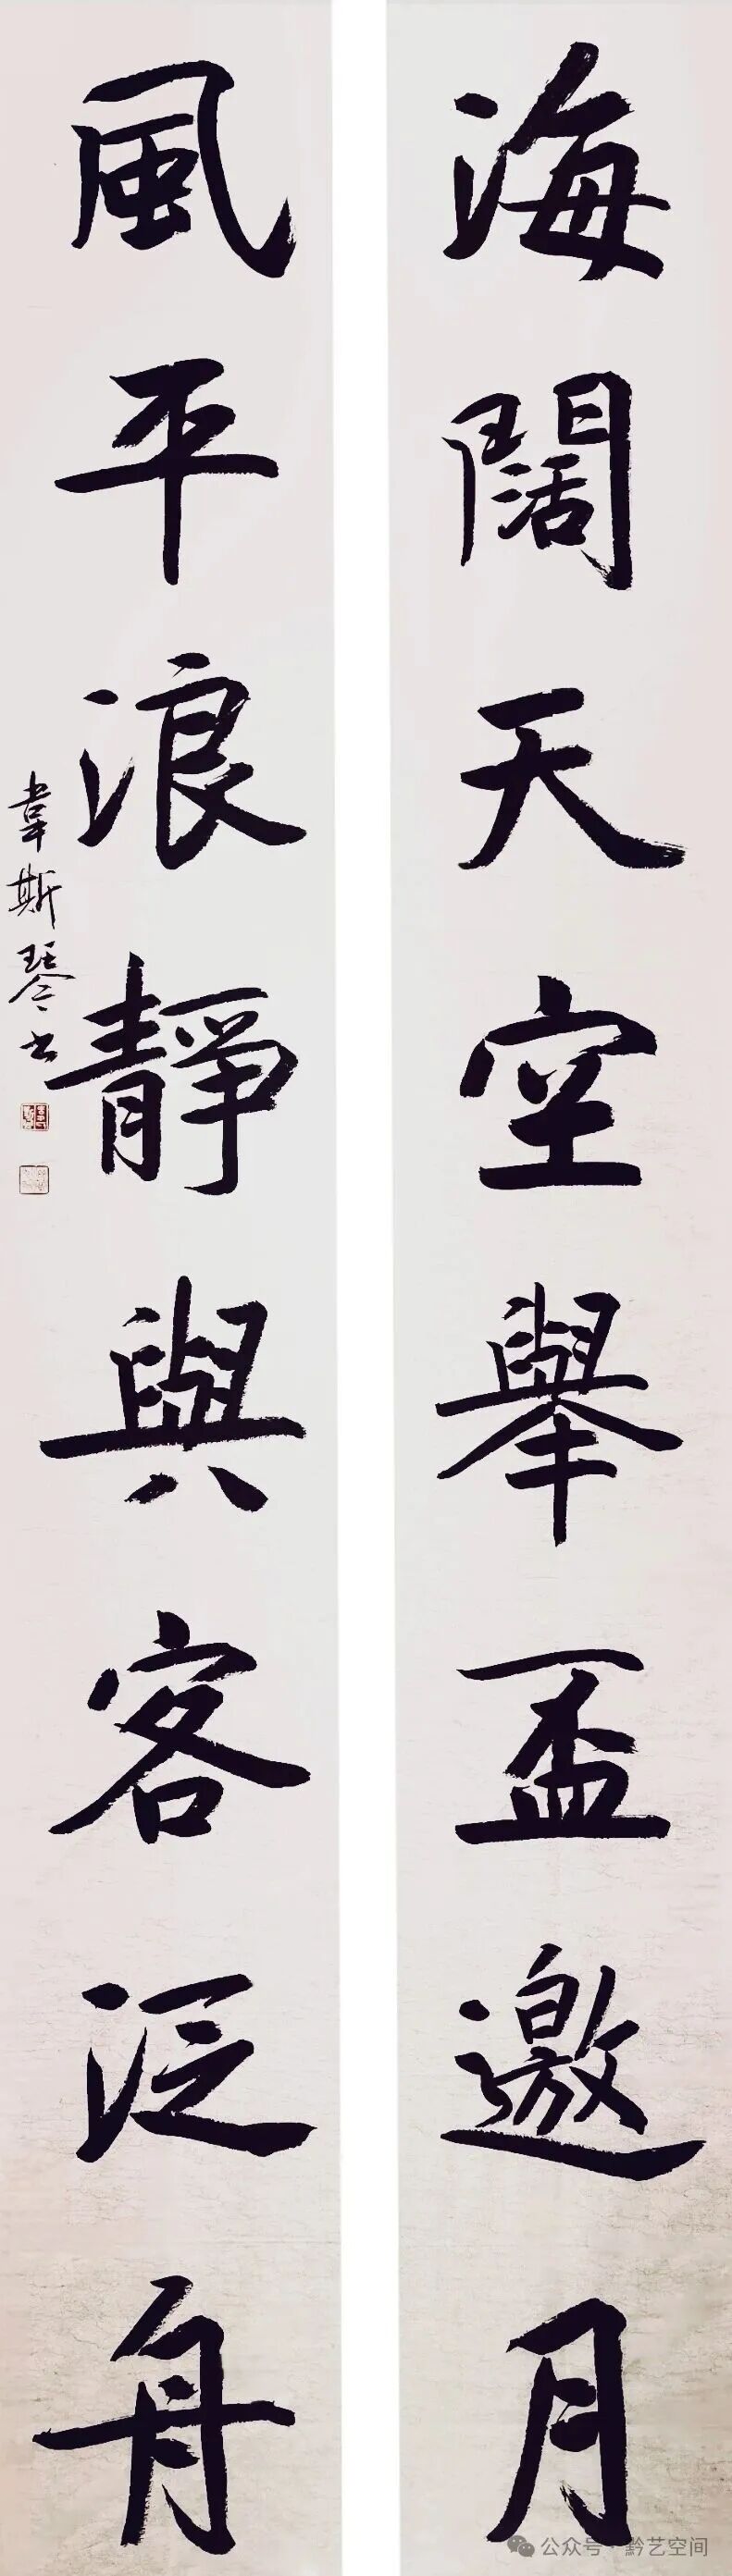 海闊天空舉盃邀月
風平浪靜與客泛舟
韋斯琴书
公众号·黔艺空间